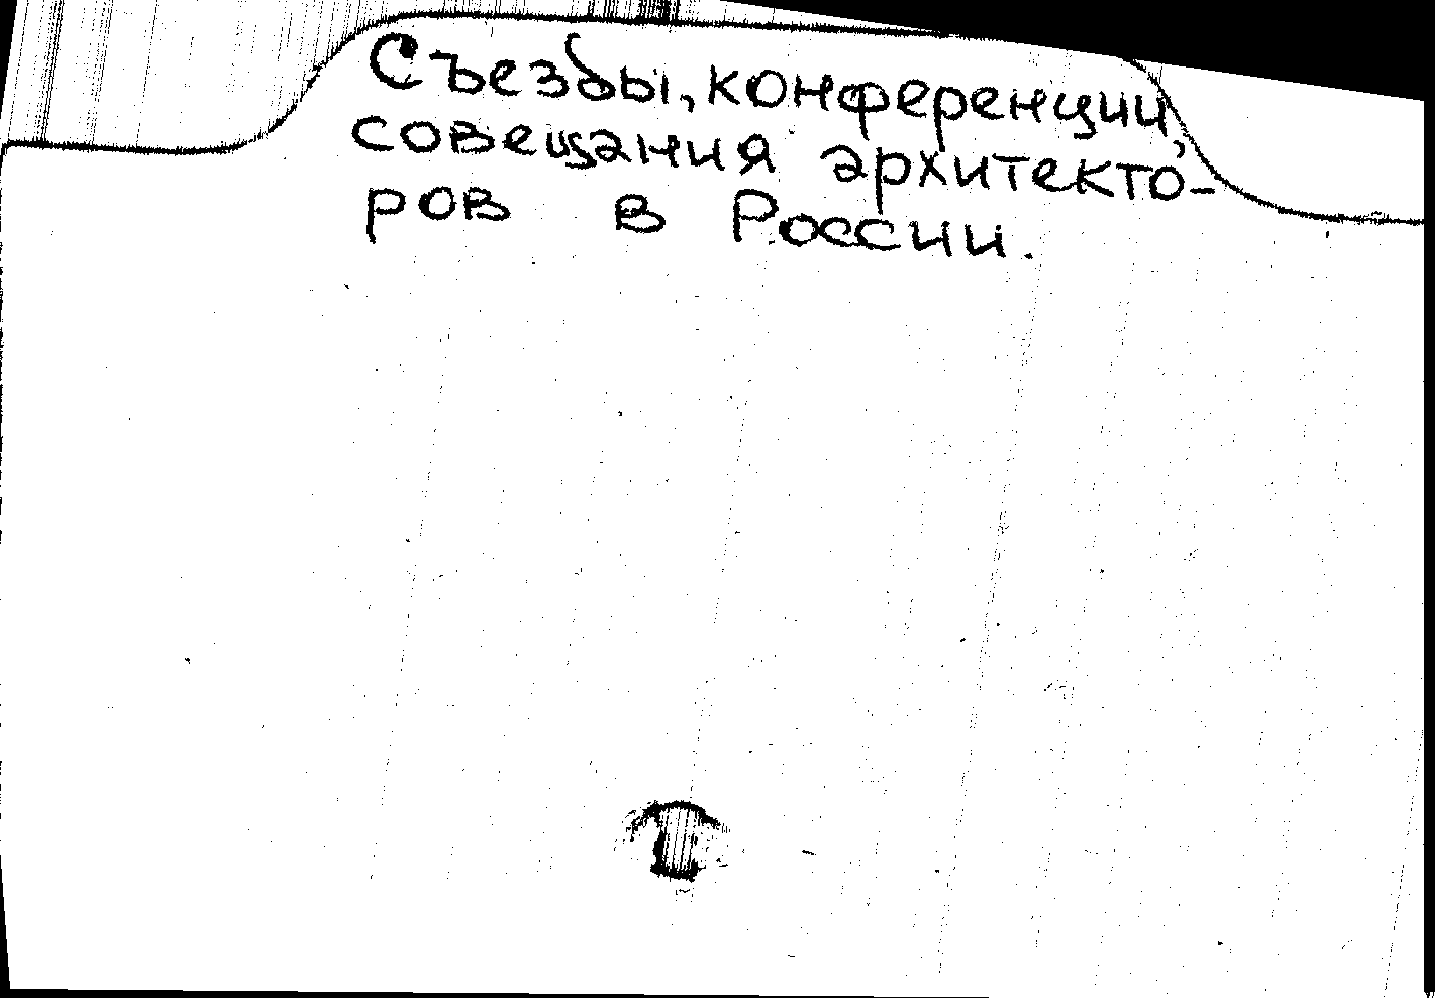 Съезды, конференции,
совещания архитекто-
ров в России.